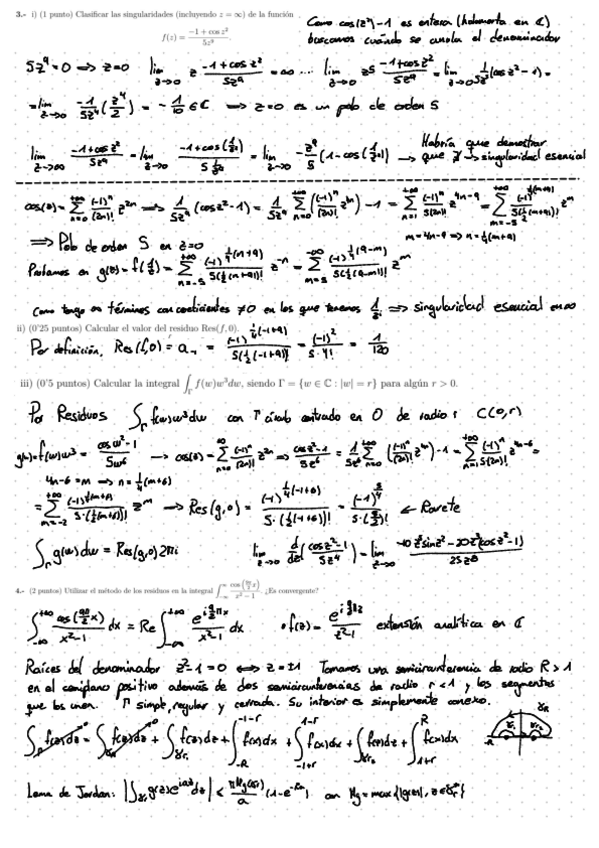 3.- i) (1 punto) Clasificar las singularidades (incluyendo z = ∞) de la función
f(z) = (-1 + cos z²)/(5z⁹).
Como cos(z²)-1 es entera (holomorfa en ℂ)
buscamos cuándo se anula el denominador
5z⁹=0 ⟹ z=0 lim_{z→0} z (-1+cos z²)/(5z⁹) = ∞ ... lim_{z→0} z⁵ (-1+cos z²)/(5z⁹) = lim_{z→0} 1/(5z⁴) (cos z²-1) =
= lim_{z→0} -1/(5z⁴) (z⁴/2) = -1/10 ∈ ℂ ⟹ z=0 es un polo de orden 5
lim_{z→∞} (-1+cos z²)/(5z⁹) = lim_{z→0} (-1+cos(1/z²))/(5 1/z⁹) = lim_{z→0} -z⁹/5 (1-cos(1/z²)) → Habría que demostrar
que ∄ → singularidad esencial
cos(z) = Σ_{n=0}^{+∞} (-1)ⁿ/(2n)! z²ⁿ ⟹ 1/(5z⁹) (cos z²-1) = 1/(5z⁹) Σ_{n=0}^{+∞} ((-1)ⁿ/(2n)! z⁴ⁿ) - 1 = Σ_{n=1}^{+∞} (-1)ⁿ/(5(2n)!) z^{4n-9} = Σ_{m=-5}^{+∞} (-1)^{¼(m+9)}/(5(½(m+9))!) z^m
m = 4n-9 ⟹ n = ¼(m+9)
⟹ Polo de orden 5 en z=0
Probamos en g(z) = f(1/z) = Σ_{n=-5}^{+∞} (-1)^{¼(n+9)}/(5(½(n+9))!) z^{-n} = Σ_{m=5}^{-∞} (-1)^{¼(9-m)}/(5(½(9-m))!) z^m
Como tengo ∞ términos con coeficientes ≠0 en los que tenemos 1/z ⟹ singularidad esencial en ∞
ii) (0'25 puntos) Calcular el valor del residuo Res(f, 0).
Por definición, Res(f,0) = a₋₁ = (-1)^{¼(-1+9)}/(5(½(-1+9))!) = (-1)²/(5·4!) = 1/120
iii) (0'5 puntos) Calcular la integral ∫_Γ f(w)w³dw, siendo Γ = {w ∈ ℂ : |w| = r} para algún r > 0.
Por Residuos ∫_Γ f(w)w³dw con Γ círculo centrado en 0 de radio r C(0,r)
g(w)=f(w)w³ = (cos w²-1)/(5w⁶) → cos(z) = Σ_{n=0}^{∞} (-1)ⁿ/(2n)! z²ⁿ ⟹ (cos z²-1)/(5z⁶) = 1/(5z⁶) Σ_{n=0}^{+∞} ((-1)ⁿ/(2n)! z⁴ⁿ) - 1 = Σ_{n=1}^{+∞} (-1)ⁿ/(5(2n)!) z^{4n-6} =
4n-6=m ⟹ n=¼(m+6)
= Σ_{m=-2}^{+∞} (-1)^{¼(m+6)}/(5·(½(m+6))!) z^m → Res(g,0) = (-1)^{¼(-1+6)}/(5·(½(-1+6))!) = (-1)^{5/4}/(5·(5/2)!) ← Rarete
∫_Γ g(w)dw = Res(g,0) 2πi lim_{z→0} d/dz((cos z²-1)/(5z⁴)) = lim_{z→0} (-10z⁵ sin z² - 20z³(cos z²-1))/(25z⁸)
4.- (2 puntos) Utilizar el método de los residuos en la integral ∫_{-∞}^{∞} cos(9π/2 x)/(x²-1). ¿Es convergente?
∫_{-∞}^{+∞} cos(9π/2 x)/(x²-1) dx = Re ∫_{-∞}^{+∞} e^{i 9/2 πx}/(x²-1) dx • f(z) = e^{i 9/2 πz}/(z²-1) extensión analítica en ℂ
Raíces del denominador z²-1=0 ⟺ z=±1 Tomamos una semicircunferencia de radio R>1
en el semiplano positivo además de dos semicircunferencias de radio r<1 y los segmentos
que los unen. Γ simple, regular y cerrada. Su interior es simplemente conexo.
∫_Γ f(z)dz = ∫_{γ_R} f(z)dz + ∫_{γ_{r₁}} f(z)dz + ∫_{-R}^{-1-r} f(x)dx + ∫_{-1+r}^{1-r} f(x)dx + ∫_{γ_{r₂}} f(z)dz + ∫_{1+r}^{R} f(x)dx
γ_R
-R R
Lema de Jordan: |∫_{γ_R} g(z)e^{iaz}dz| < πM_g(R)/a (1-e^{-Ra}) con M_g = max{|g(z)|, z∈γ_R}